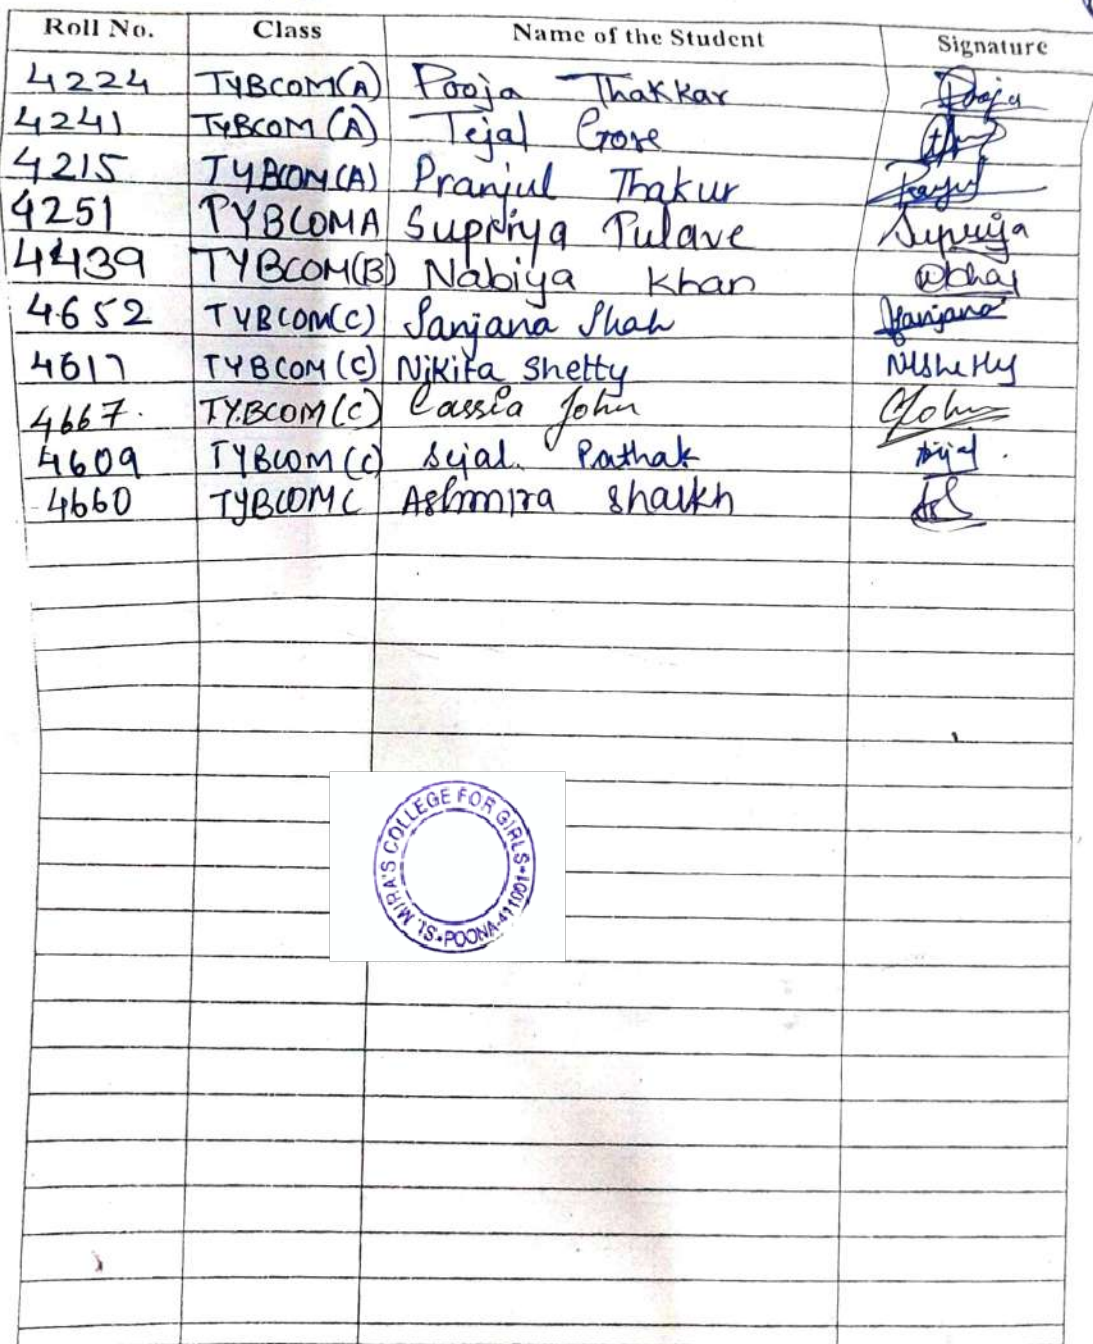 Roll No. Class Name of the Student Signature
4224 TYBCOM(A) Pooja Thakkar Pooja
4241 TYBCOM(A) Tejal Gore
4215 TYBCOM(A) Pranjul Thakur
4251 TYBCOMA Supriya Pulave Supriya
4439 TYBCOM(B) Nabiya Khan
4652 TYBCOM(C) Sanjana Shah Sanjana
4617 TYBCOM(C) Nikita Shetty NUShetty
4667. TY.BCOM(C) Cassia John CJohn
4609 TYBCOM(C) Sejal. Pathak
4660 TYBCOMC Ashmira Shaikh
ST. MIRA'S COLLEGE FOR GIRLS • POONA-411001 •